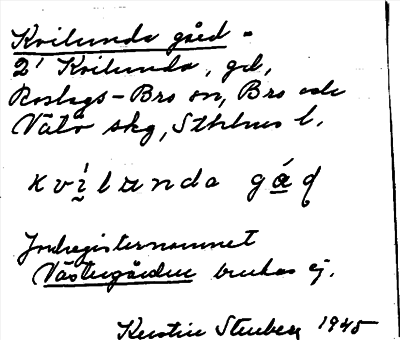 Kvilunda gård -
2¹ Kvilunda, gd,
Roslags-Bro sn, Bro och
Vätö skg, Sthlms l.
kvi̬̍lɑnda gáɖ
Jordregisternamnet
Västergården brukas ej.
Kerstin Stenberg 1945